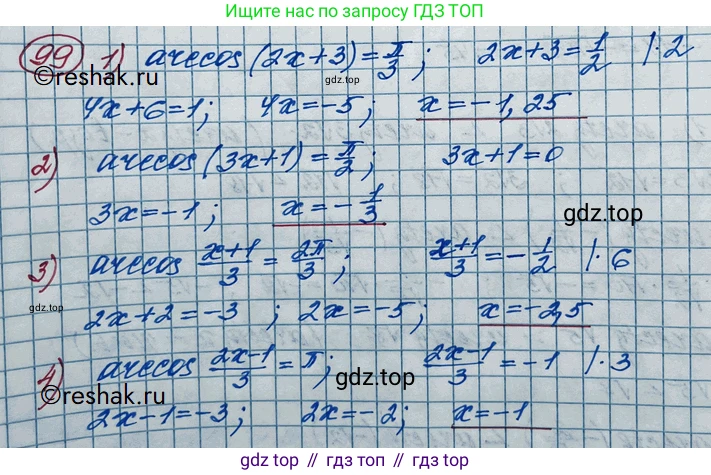 Ищите нас по запросу ГДЗ ТОП
99 1) arccos (2x+3) = π/3 ; 2x+3 = 1/2 |·2
©reshak.ru
4x+6=1; 4x=-5; x=-1,25
2) arccos (3x+1) = π/2 ; 3x+1=0
3x=-1; x=-1/3
gdz.top
3) arccos (x+1)/3 = 2π/3 ; (x+1)/3 = -1/2 |·6
gdz.top
2x+2=-3 ; 2x=-5; x=-2,5
4) arccos (2x-1)/3 = π; (2x-1)/3 = -1 |·3
©reshak.ru
gdz.top
2x-1=-3; 2x=-2; x=-1
gdz top // гдз топ // gdz.top